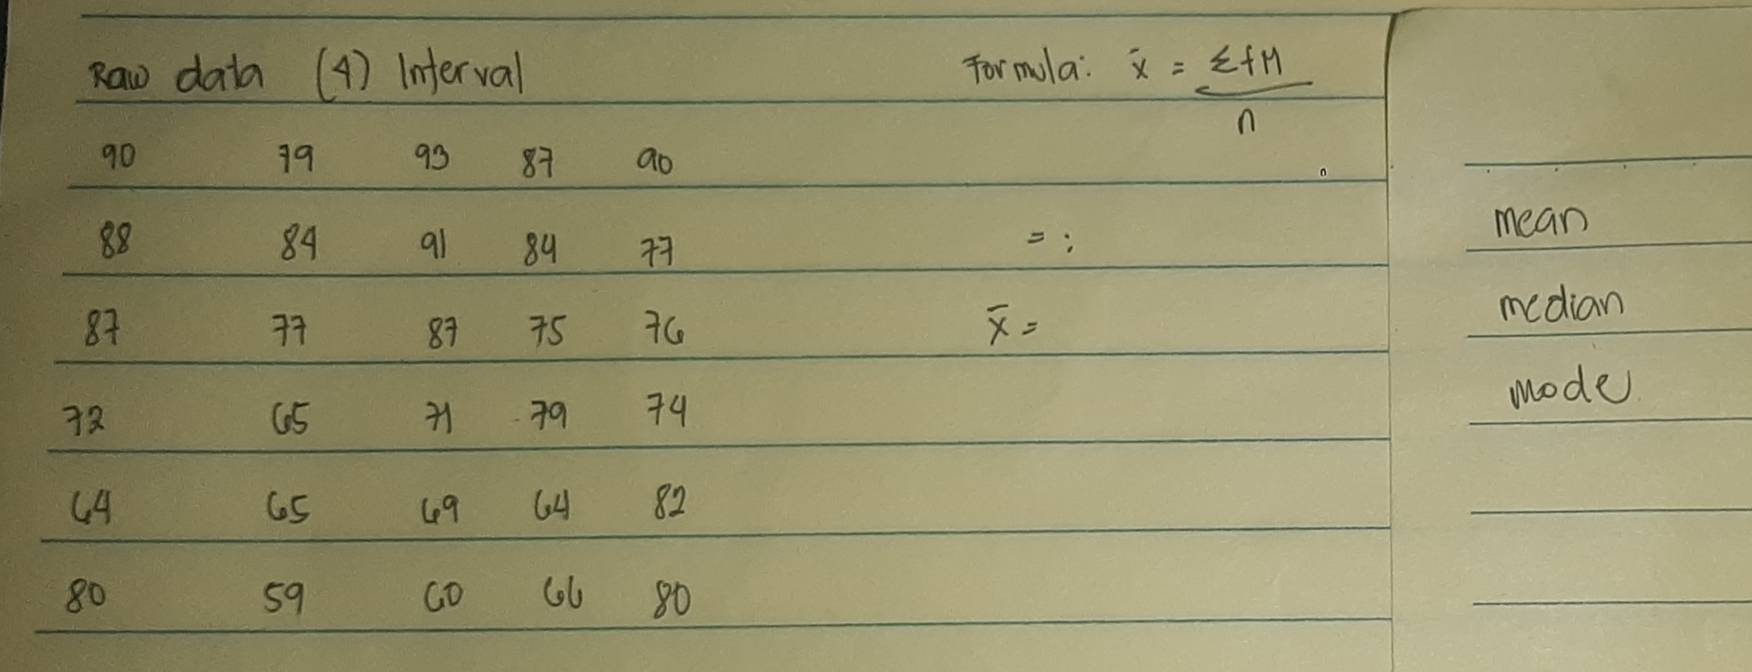 Raw data (4) Interval
Formula: x̄ = ΣfM
n
90 79 93 87 90
88 84 91 84 77
= :
87 77 87 75 76
x̄ =
72 65 71 79 74
64 65 69 64 82
80 59 60 66 80
mean
median
mode